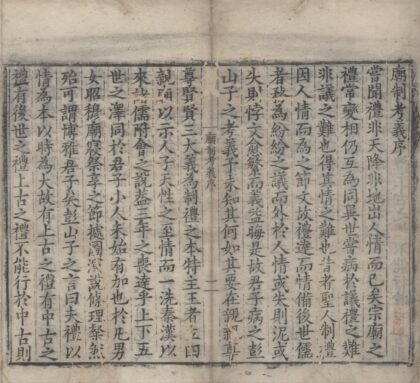 廟制考義序
嘗聞禮非天降非地出人情而已矣宗廟之
禮常變相仍互為同異世嘗病於議禮之難
非議之難也得其情之難也昔者聖人制禮
因人情而為之節文故禮達而情備後世儒
者殽為紛紛之議而外於人情或失則泥或
失則悖文愈繁而義益晦是故君子病之彭
山子之考義予未知其何如其要在親親
尊賢貴三大義為制禮之本特主王者
親以示人子天性之至情而一洗秦漢以
來諸儒附會之說益三年之喪達乎上下五
世之澤同於君子小人未始有加也至於凡男
女昭穆廟寢祭享之節據圖演說條理粲然
殆可謂博雅君子矣彭山子之言曰夫禮以
情為本以時為大故有上古之禮有中古之
禮有後世之禮上古之禮不能行於中古則
廟制考義序
一